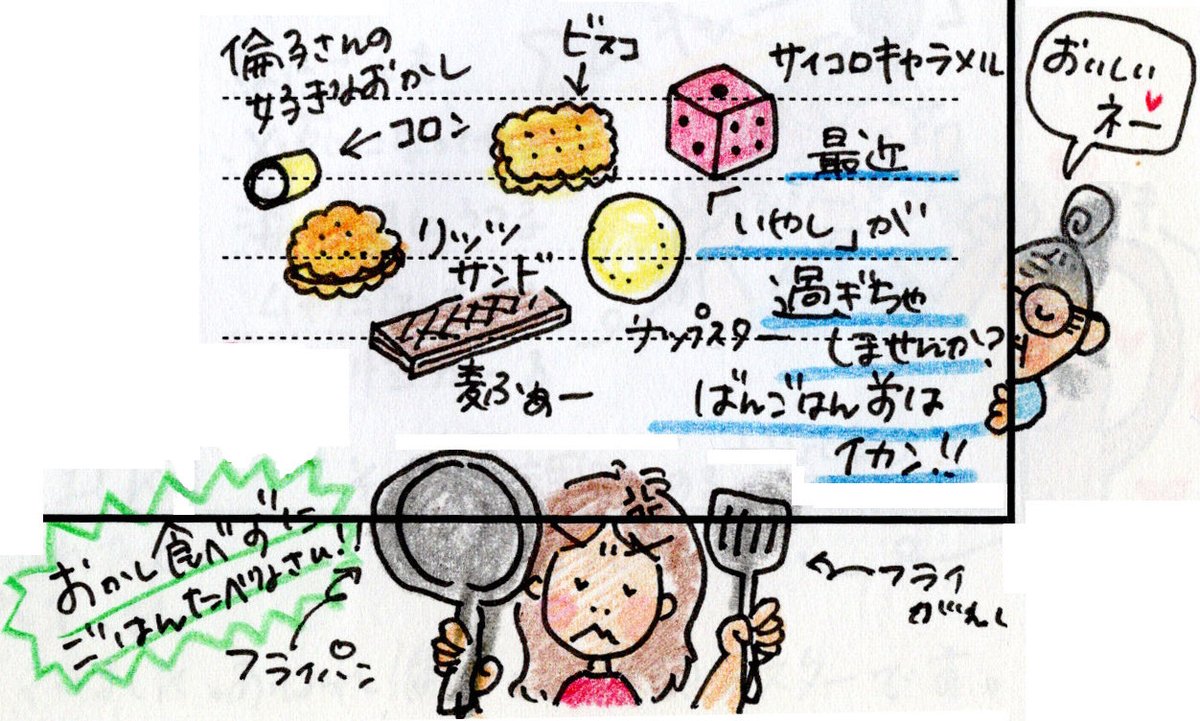 倫子さんの
好きなおかし
ビスコ
サイコロキャラメル
おいしい
ネー
コロン
最近
「いやし」が
リッツ
サンド
過ぎちゃ
チップスター
しませんか?
麦ふぁー
ばんごはん前は
イカン!!
おかし食べずに
ごはんたべなさい!!
フライパン
フライ
がえし